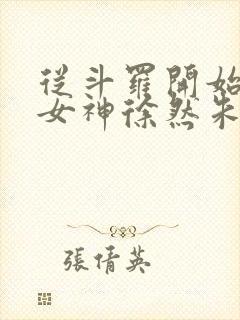 從斗羅開始
女神徐然朱
張倩英